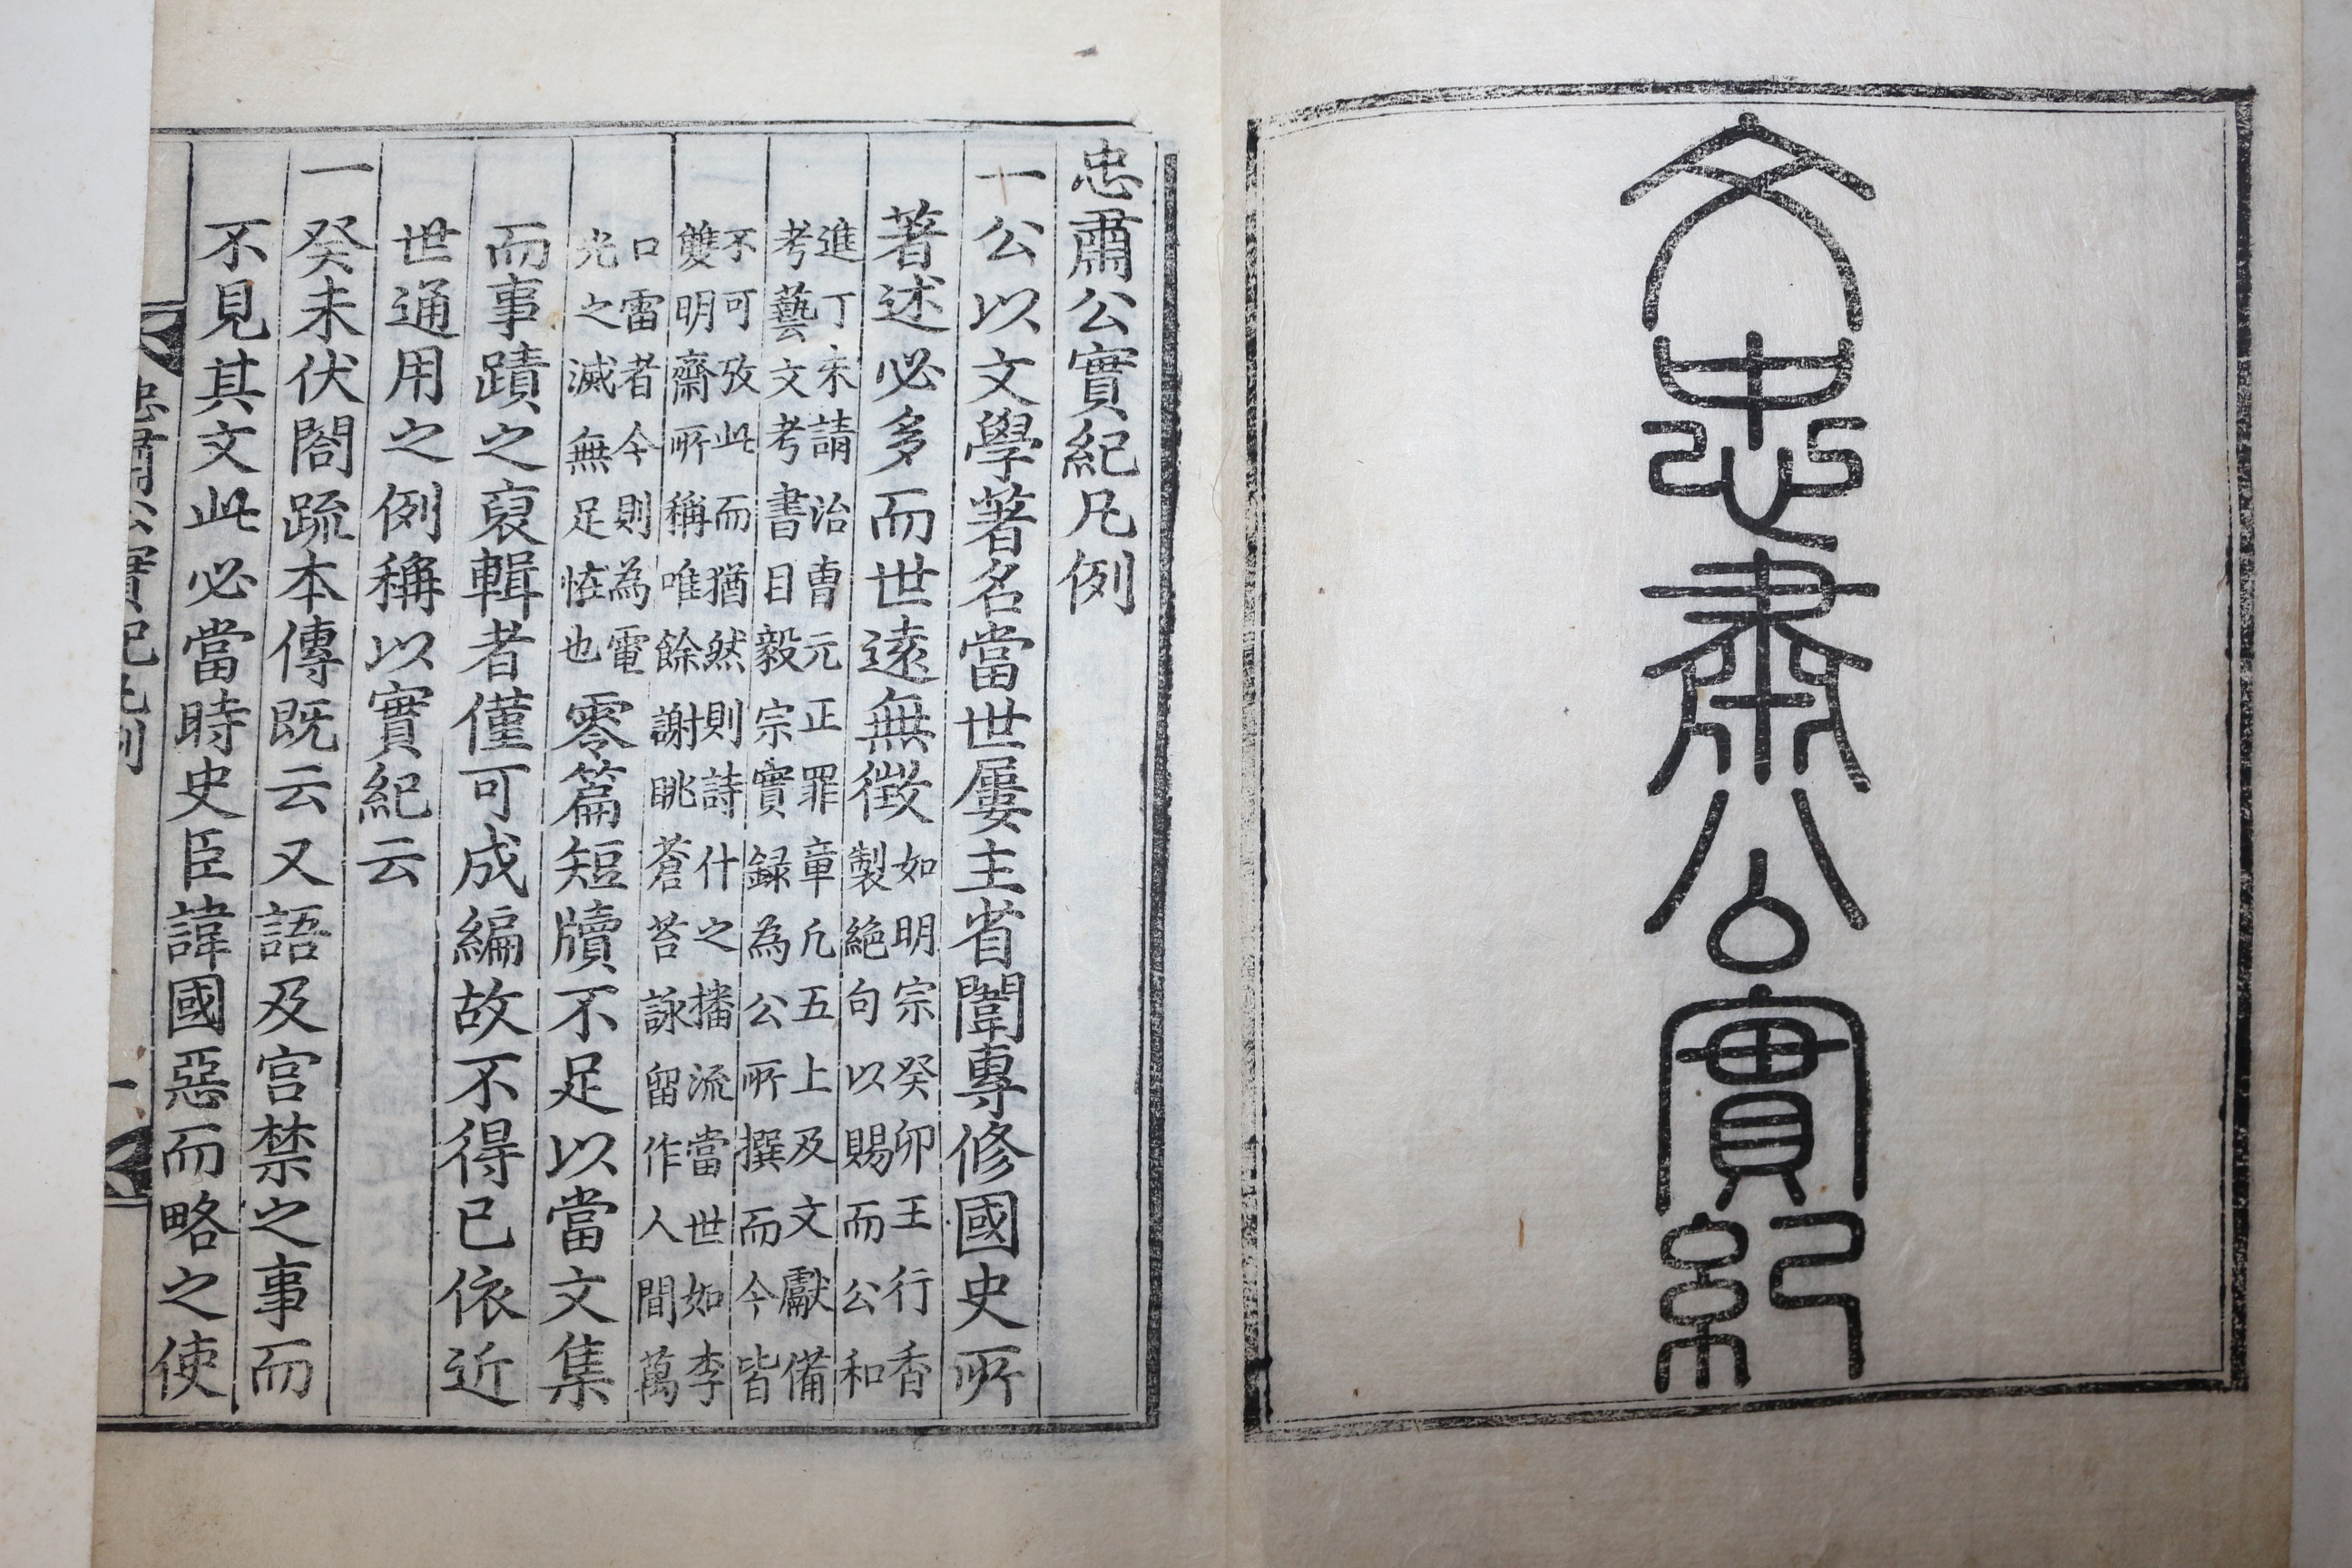 文忠肅公實紀
忠肅公實紀凡例
一公以文學著名當世屢主省闈專修國史所
著述必多而世遠無徵
如明宗癸卯王行香
製絶句以賜而公和
進丁未請治曺元正罪章凡五上及文獻備
考藝文考書目毅宗實録為公所撰而今皆
不可攷此而猶然則詩什之播流當世如李
雙明齋所稱唯餘謝眺蒼苔詠留作人間萬
口雷者今則為電
光之滅無足恠也
零篇短牘不足以當文集
而事蹟之裒輯者僅可成編故不得已依近
世通用之例稱以實紀云
一癸未伏閤疏本傳既云又語及宫禁之事而
不見其文此必當時史臣諱國惡而略之使
忠肅公實紀凡例 一